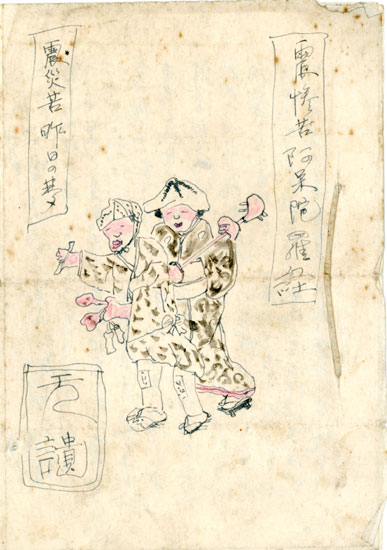 震惨苦阿呆陀羅経
震災苦昨日の夢